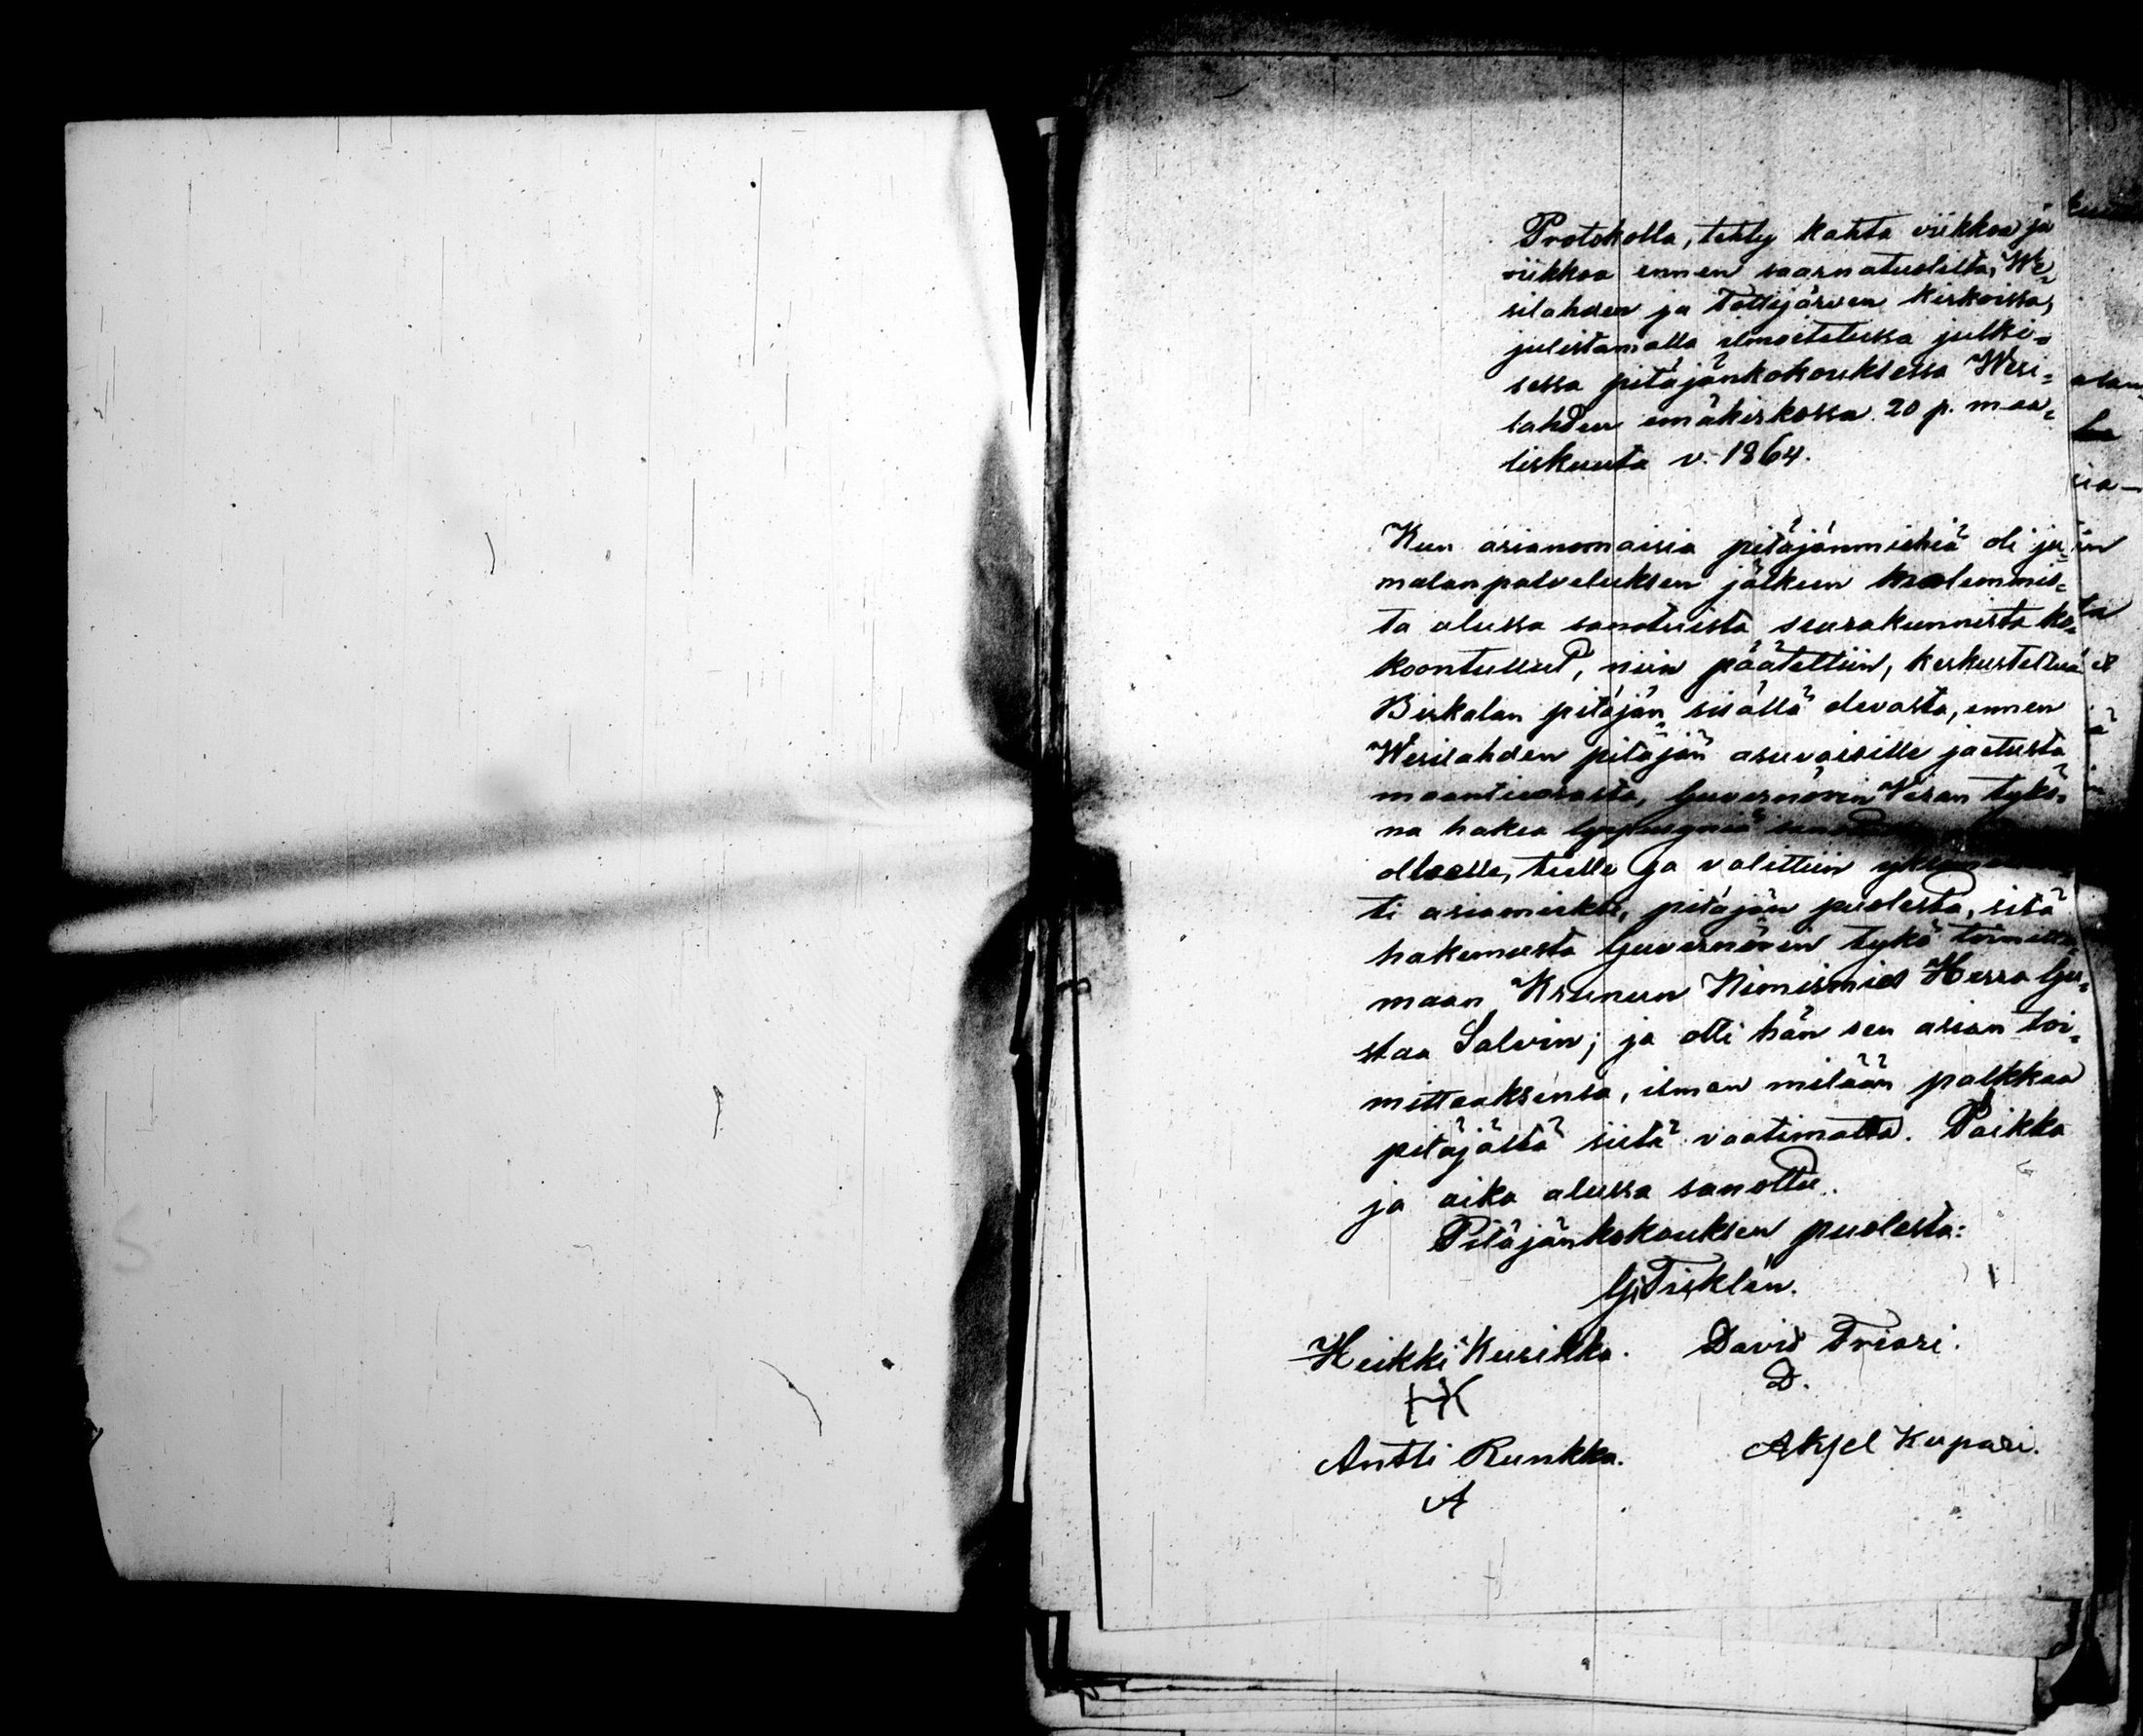 Protokolla, tehty kahta viikkoa ja
viikkoa ennen saarnatuolista, We-
silahden ja Tottijärven kirkoissa,
julistamalla ilmoitetussa julki-
sessa pitäjänkokouksessa Wesi-
lahden emäkirkossa 20 p. maa-
liskuuta v. 1864.
Kun asianomaisia pitäjänmiehiä oli ju-
malanpalveluksen jälkeen molemmis-
ta alussa sanotuista seurakunnista ko-
koontullut, niin päätettiin, keskustellua
Birkalan pitäjän sisällä olevasta, ennen
Wesilahden pitäjän asuvaisille jaetusta
maantieosasta, Guvernörin Viran tykö-
nä hakea
olleelle, tielle ja valittiin
ti asiamieheksi, pitäjän puolesta, sitä
hakemusta Guvernörin tykö toimitta-
maan Kruunun Nimismies Herra Gu-
staa Salvin; ja otti hän sen asian toi-
mittaaksensa, ilman mitään palkkaa
pitäjältä siitä vaatimatta. Paikka
ja aika alussa sanottu.
Pitäjänkokouksen puolesta:
G. Fisklén.
Heikki Kusikka. David Friari.
HK D.
Antti Runkka. Aksel Kupari.
A